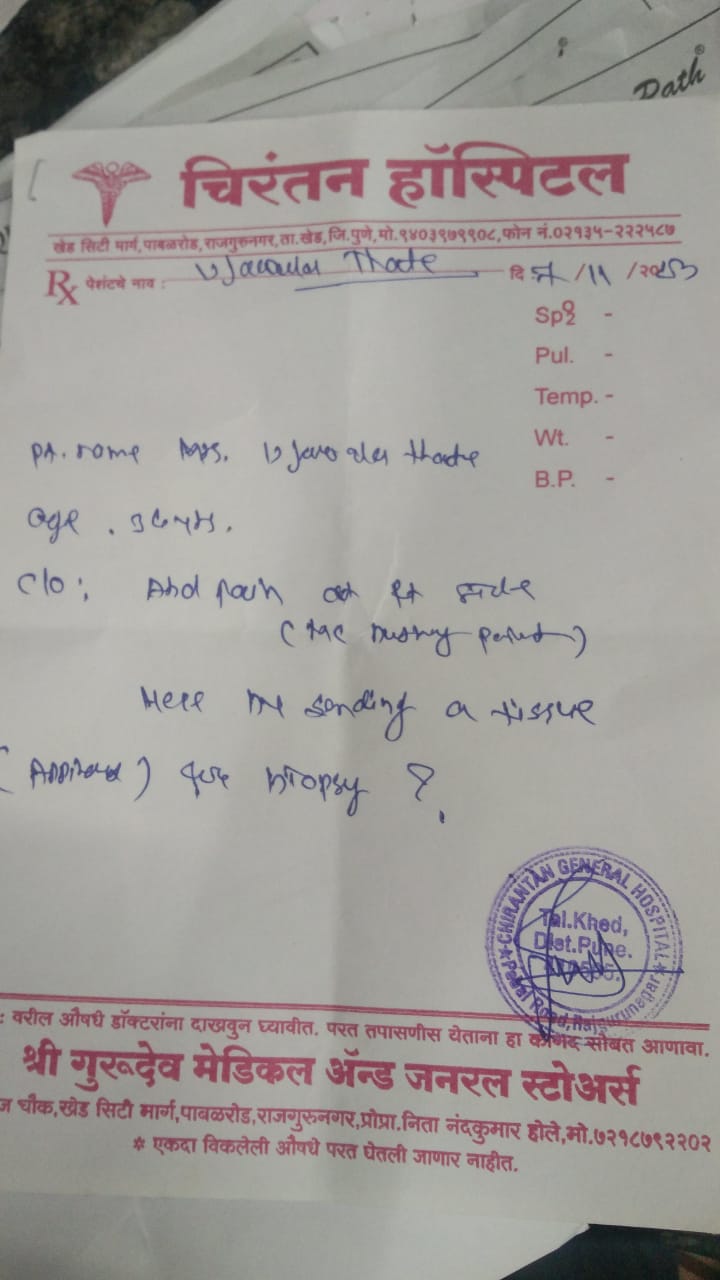 Dath®
चिरंतन हॉस्पिटल
खेड सिटी मार्ग,पाबळरोड,राजगुरुनगर,ता.खेड,जि.पुणे,मो.९४०३९७९९०८,फोन नं.०२१३५-२२२५८७
Rx पेशंटचे नाव : Thode दि /11 /२०
Spo2 -
Pul. -
Temp. -
Wt. -
B.P. -
Pt. name Mrs. Thode
Age .
C/o : Abd pain
Here I'm sending a tissue
( ) for biopsy ?
CHIRANTAN GENERAL HOSPITAL
Tal.Khed,
Dist.Pune.
Pabal Road, Rajgurunagar
: वरील औषधे डॉक्टरांना दाखवुन घ्यावीत. परत तपासणीस येताना हा कागद सोबत आणावा.
श्री गुरूदेव मेडिकल ॲन्ड जनरल स्टोअर्स
चौक,खेड सिटी मार्ग,पाबळरोड,राजगुरुनगर,प्रोप्रा.निता नंदकुमार होले,मो.७२१८७९२२०२
* एकदा विकलेली औषधे परत घेतली जाणार नाहीत.